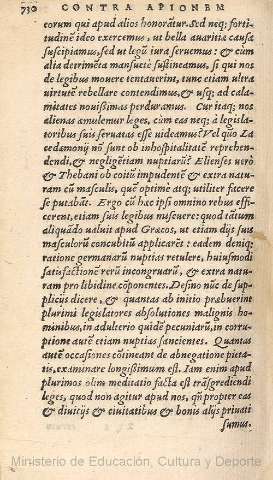 730 CONTRA APIONEM
eorum qui apud alios honorātur. Sed neq; forti-
tudinē ideo exercemus, ut bella auaritia causa
suscipiamus, sed ut legū iura seruemus: & cùm
alia detrimēta mansuetè sustineamus, si qui nos
de legibus mouere tentauerint, tunc etiam ultra
virtutē rebellare contendimus, & usq; ad cala-
mitates nouissimas perduramus. Cur itaq; nos
alienas æmulemur leges, cùm eas neq; à legisla-
toribus suis seruatas esse uideamus? Vel quō La
cedæmonij nō sunt ob inhospitalitatē reprehen-
dendi, & negligētiam nuptiarū? Elienses verò
& Thebani ob coitū impudentē & extra natu-
ram cū masculis, quē optimè atq; utiliter facere
se putabāt. Ergo cū hæc ipsi omnino rebus effi-
cerent, etiam suis legibus miscuere: quod tātum
aliquādo ualuit apud Græcos, ut etiam dijs suis
masculorū concubitū applicarēt: eadem deniq;
ratione germanarū nuptias retulere, huiusmodi
satisfactionē rerū incongruarū, & extra natu-
ram pro libidine cōponentes. Desino nūc de sup-
plicijs dicere, & quantas ab initio præbuerint
plurimi legislatores absolutiones malignis ho-
minibus, in adulterio quidē pecuniarū, in corru-
ptione autē etiam nuptias sancientes. Quantas
autē occasiones cōtineant de abnegatione pieta-
tis, examinare longissimum est. Iam enim apud
plurimos olim meditatio facta est trāsgrediendi
leges, quod non agitur apud nos, qn̄ propter eas
& diuitijs & ciuitatibus & bonis alijs priuati
sumus.
Ministerio de Educación, Cultura y Deporte